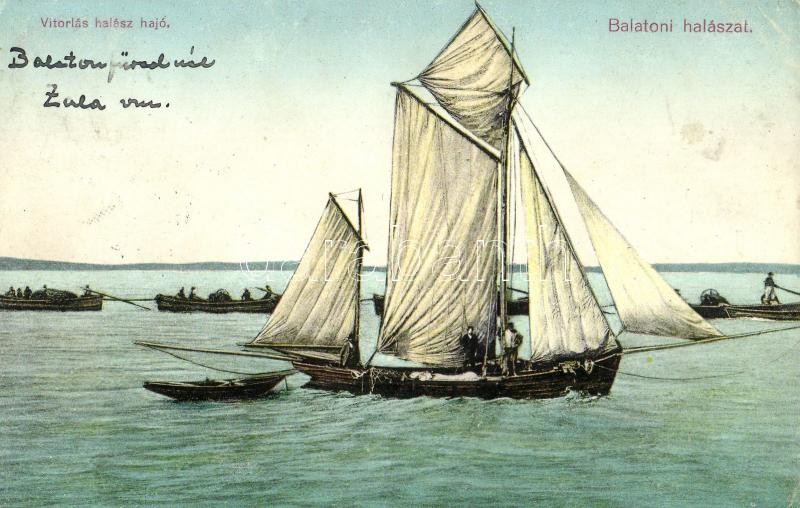 Vitorlás halász hajó.
Balatoni halászat.
Balatonfürednél
Zala vm.
Darabanth